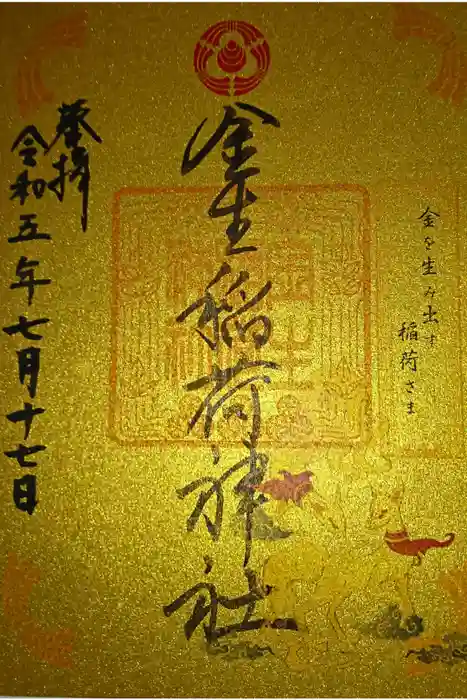 金を生み出す
稲荷さま
金生稲荷神社
登拝
令和五年七月十七日